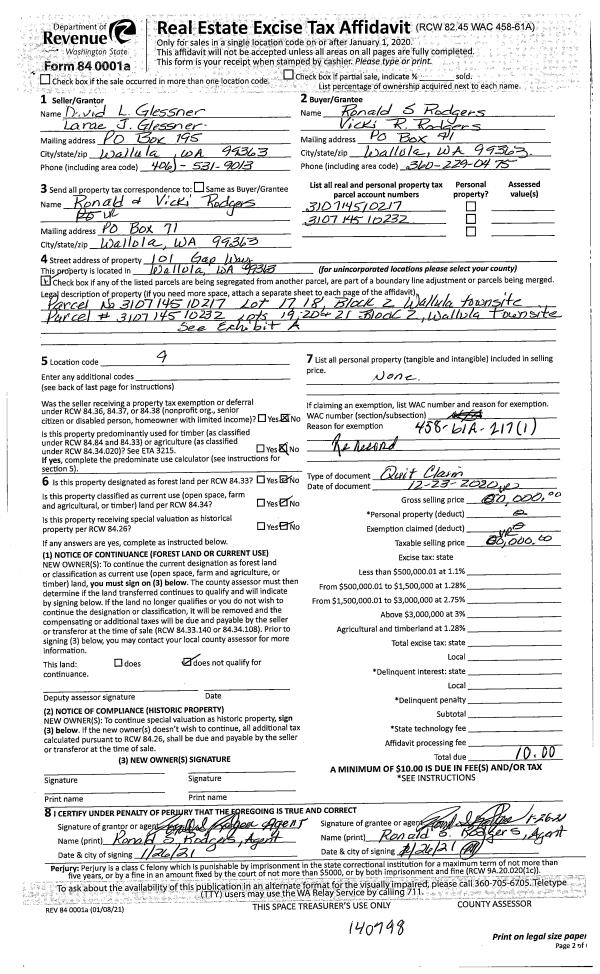 Department of
Revenue
Washington State
Form 84 0001a
Real Estate Excise Tax Affidavit (RCW 82.45 WAC 458-61A)
Only for sales in a single location code on or after January 1, 2020.
This affidavit will not be accepted unless all areas on all pages are fully completed.
This form is your receipt when stamped by cashier. Please type or print.
Check box if the sale occurred in more than one location code.
Check box if partial sale, indicate % ____ sold.
List percentage of ownership acquired next to each name.
1 Seller/Grantor
Name David L. Glessner
Larae J. Glessner
Mailing address PO Box 195
City/state/zip Wallula, WA 99363
Phone (including area code) 406-531-9013
2 Buyer/Grantee
Name Ronald S Rodgers
Vicki R. Rodgers
Mailing address PO Box 71
City/state/zip Wallula, WA 99363
Phone (including area code) 360-229-0475
3 Send all property tax correspondence to: Same as Buyer/Grantee
Name Ronald & Vicki Rodgers
Mailing address PO Box 71
City/state/zip Wallula, WA 99363
List all real and personal property tax parcel account numbers
Personal property?
Assessed value(s)
310714510217
310714510232
4 Street address of property 101 Gap Way
This property is located in Wallula, WA 99363 (for unincorporated locations please select your county)
Check box if any of the listed parcels are being segregated from another parcel, are part of a boundary line adjustment or parcels being merged.
Legal description of property (if you need more space, attach a separate sheet to each page of the affidavit).
Parcel No 310714510217 Lot 17, 18, Block 2 Wallula townsite
Parcel # 310714510232 Lots 19, 20 & 21 Block 2, Wallula Townsite
See Exhibit A
5 Location code 9
Enter any additional codes
(see back of last page for instructions)
Was the seller receiving a property tax exemption or deferral
under RCW 84.36, 84.37, or 84.38 (nonprofit org., senior
citizen or disabled person, homeowner with limited income)? Yes No
Is this property predominantly used for timber (as classified
under RCW 84.84 and 84.33) or agriculture (as classified
under RCW 84.34.020)? See ETA 3215. Yes No
If yes, complete the predominate use calculator (see instructions for
section 5).
6 Is this property designated as forest land per RCW 84.33? Yes No
Is this property classified as current use (open space, farm
and agricultural, or timber) land per RCW 84.34? Yes No
Is this property receiving special valuation as historical
property per RCW 84.26? Yes No
If any answers are yes, complete as instructed below.
(1) NOTICE OF CONTINUANCE (FOREST LAND OR CURRENT USE)
NEW OWNER(S): To continue the current designation as forest land
or classification as current use (open space, farm and agriculture, or
timber) land, you must sign on (3) below. The county assessor must then
determine if the land transferred continues to qualify and will indicate
by signing below. If the land no longer qualifies or you do not wish to
continue the designation or classification, it will be removed and the
compensating or additional taxes will be due and payable by the seller
or transferor at the time of sale (RCW 84.33.140 or 84.34.108). Prior to
signing (3) below, you may contact your local county assessor for more
information.
This land: does does not qualify for
continuance.
Deputy assessor signature Date
(2) NOTICE OF COMPLIANCE (HISTORIC PROPERTY)
NEW OWNER(S): To continue special valuation as historic property, sign
(3) below. If the new owner(s) doesn't wish to continue, all additional tax
calculated pursuant to RCW 84.26, shall be due and payable by the seller
or transferor at the time of sale.
(3) NEW OWNER(S) SIGNATURE
Signature Signature
Print name Print name
7 List all personal property (tangible and intangible) included in selling
price.
None.
If claiming an exemption, list WAC number and reason for exemption.
WAC number (section/subsection)
Reason for exemption 458-61A-217(1)
Re Record
Type of document Quit Claim
Date of document 12-23-2020
Gross selling price
*Personal property (deduct)
Exemption claimed (deduct)
Taxable selling price
Excise tax: state
Less than $500,000.01 at 1.1%
From $500,000.01 to $1,500,000 at 1.28%
From $1,500,000.01 to $3,000,000 at 2.75%
Above $3,000,000 at 3%
Agricultural and timberland at 1.28%
Total excise tax: state
Local
*Delinquent interest: state
Local
*Delinquent penalty
Subtotal
*State technology fee
Affidavit processing fee
Total due 10.00
A MINIMUM OF $10.00 IS DUE IN FEE(S) AND/OR TAX
*SEE INSTRUCTIONS
8 I CERTIFY UNDER PENALTY OF PERJURY THAT THE FOREGOING IS TRUE AND CORRECT
Signature of grantor or agent Agent
Name (print) Ronald S Rodgers, Agent
Date & city of signing 1/26/21
Signature of grantee or agent 1-26-21
Name (print) Ronald S. Rodgers, Agent
Date & city of signing 1/26/21
Perjury: Perjury is a class C felony which is punishable by imprisonment in the state correctional institution for a maximum term of not more than
five years, or by a fine in an amount fixed by the court of not more than $5000, or by both imprisonment and fine (RCW 9A.20.020(1c)).
To ask about the availability of this publication in an alternate format for the visually impaired, please call 360-705-6705. Teletype
(TTY) users may use the WA Relay Service by calling 711.
REV 84 0001a (01/08/21)
THIS SPACE TREASURER'S USE ONLY
COUNTY ASSESSOR
140798
Print on legal size paper
Page 2 of